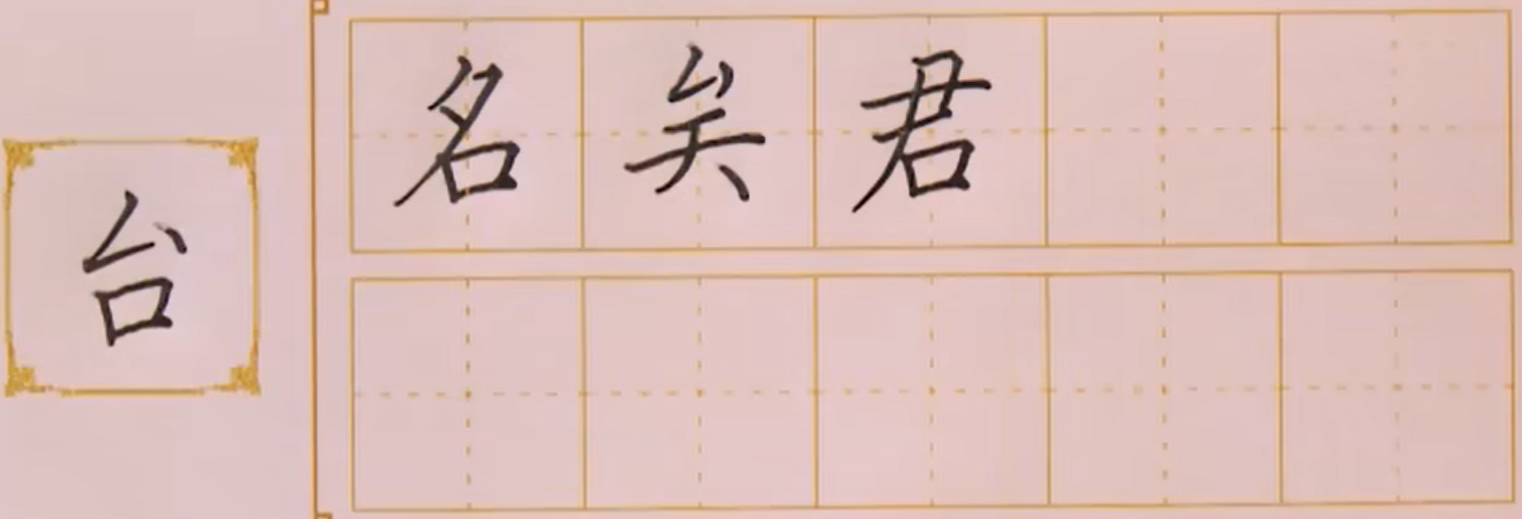 台
名矣君